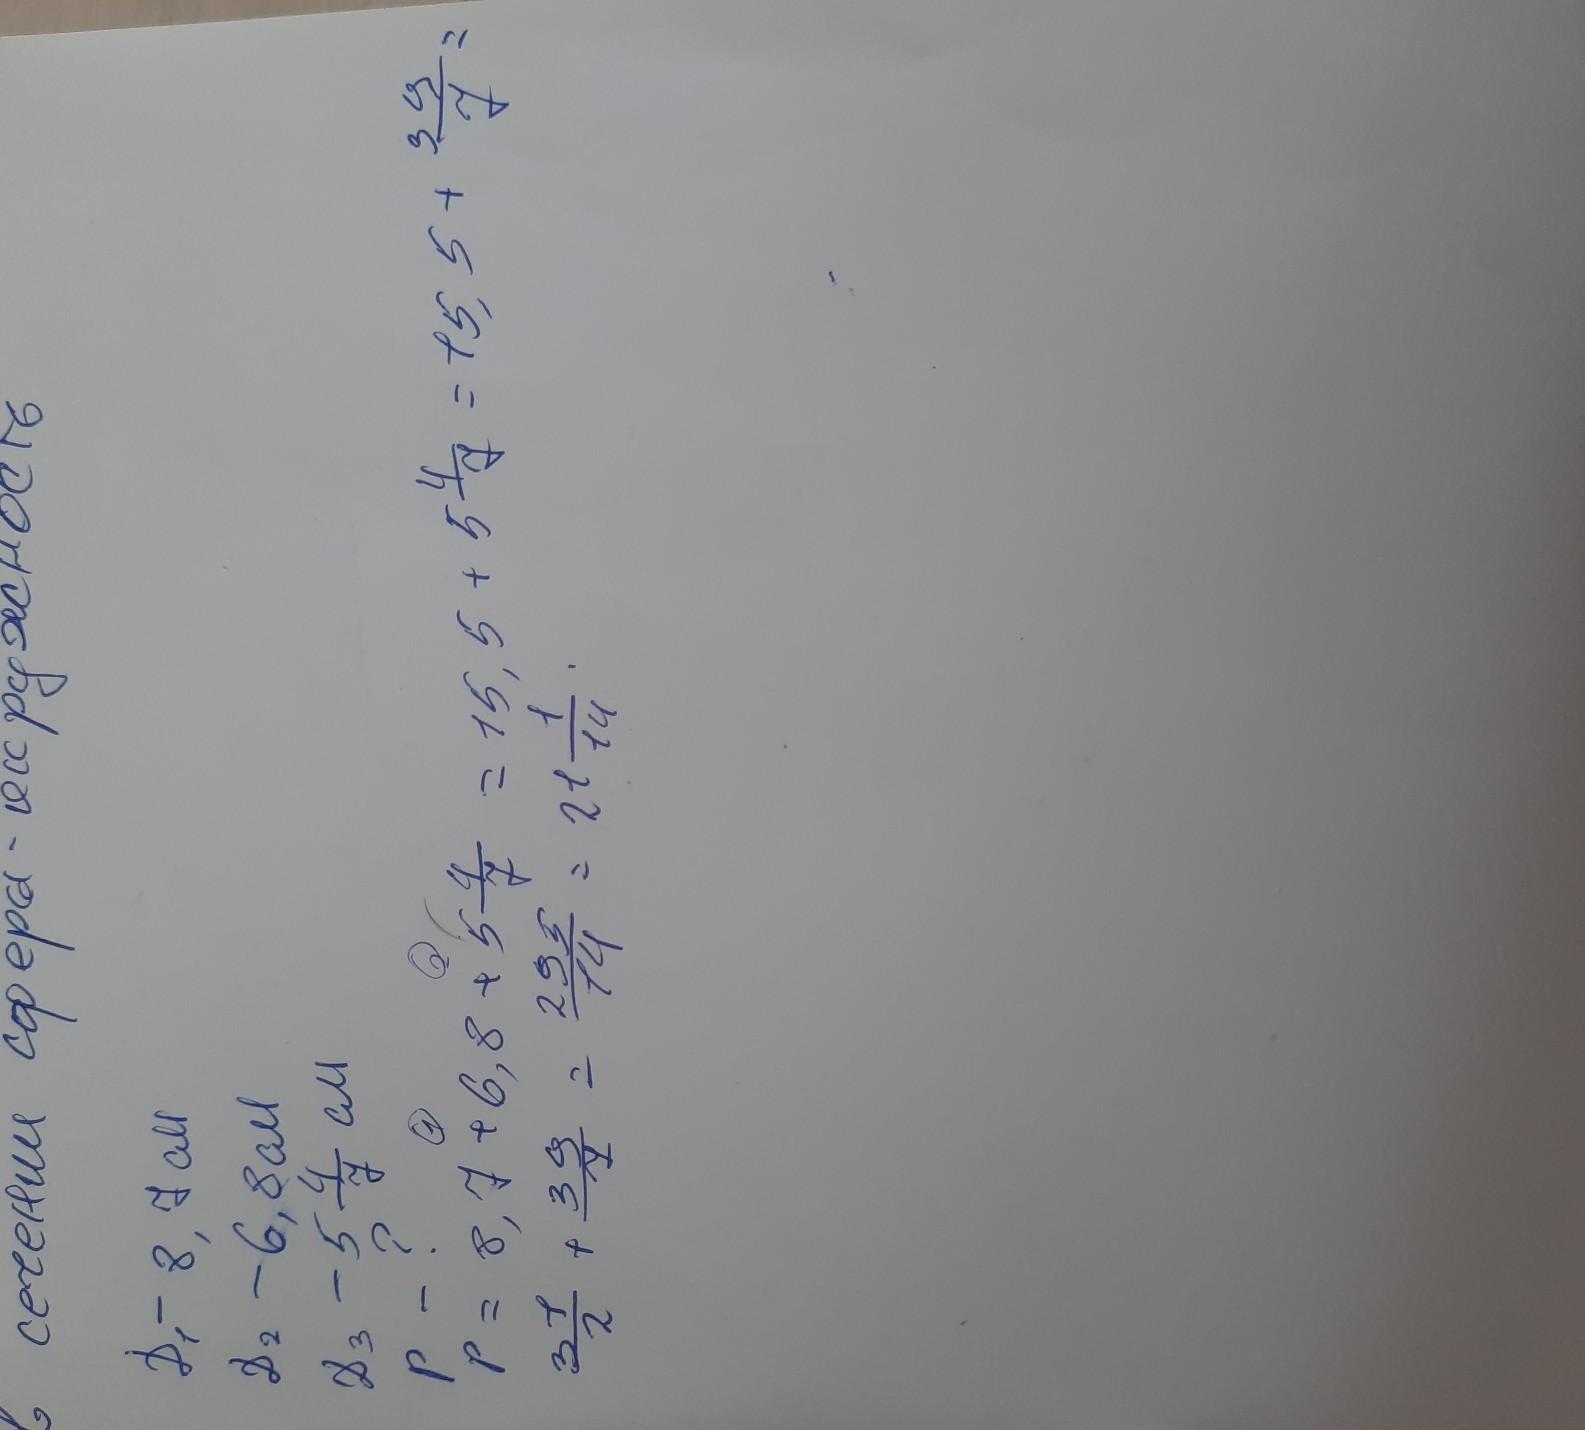 в сечении сфера - окружность
D₁ - 8,7 см
D₂ - 6,8 см
D₃ - 5 4/7 см
P - ?
P = 8,7 + 6,8 + 5 4/7 = 15,5 + 5 4/7 = 15,5 + 39/7 =
31/2 + 39/7 = 295/14 = 21 1/14.